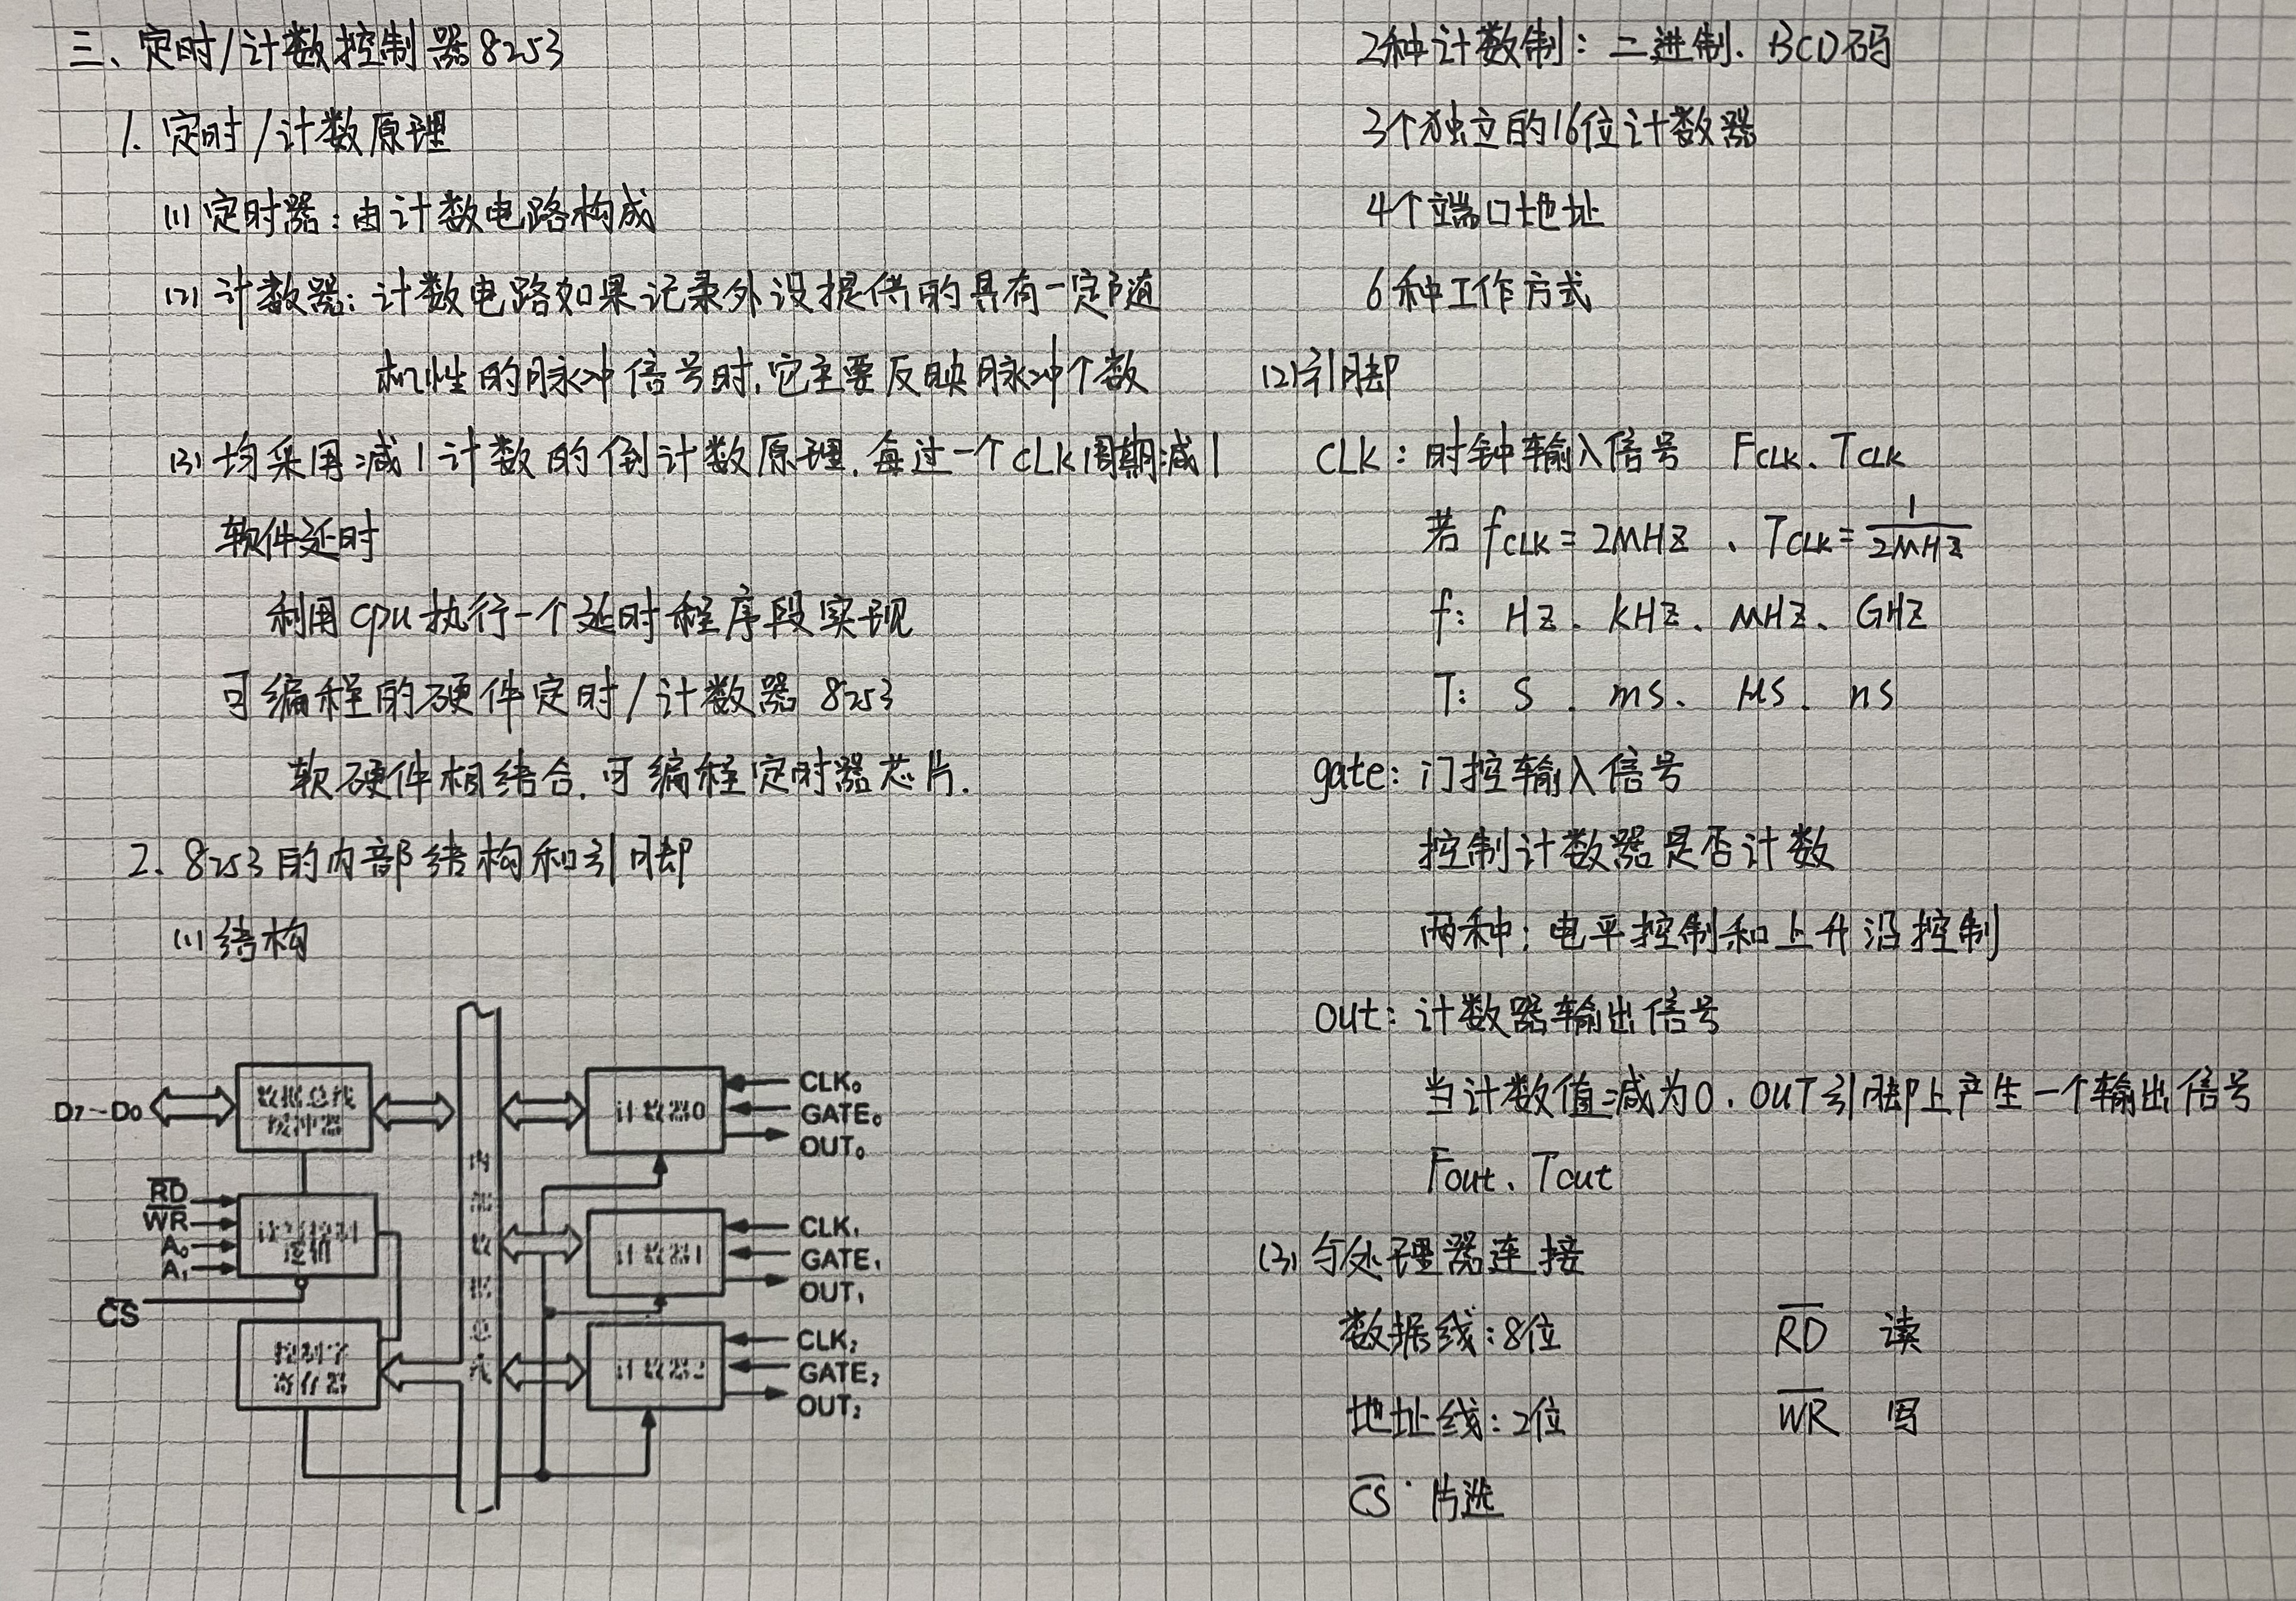 三、定时/计数控制器8253
1. 定时/计数原理
(1) 定时器:由计数电路构成
(2) 计数器:计数电路如果记录外设提供的具有一定随
机性的脉冲信号时,它主要反映脉冲个数
(3) 均采用减1计数的倒计数原理,每过一个CLK周期减1
软件延时
利用cpu执行一个延时程序段实现
可编程的硬件定时/计数器 8253
软硬件相结合,可编程定时器芯片.
2. 8253的内部结构和引脚
(1) 结构
D7~D0
数据总线
缓冲器
RD
WR
A0
A1
CS
读/写控制
逻辑
控制字
寄存器
内部数据总线
计数器0
CLK0
GATE0
OUT0
计数器1
CLK1
GATE1
OUT1
计数器2
CLK2
GATE2
OUT2
2种计数制:二进制、BCD码
3个独立的16位计数器
4个端口地址
6种工作方式
(2) 引脚
CLK:时钟输入信号 FCLK、TCLK
若 fCLK = 2MHZ 、TCLK = 1/2MHZ
f: HZ、KHZ、MHZ、GHZ
T: S、ms、μs、ns
gate:门控输入信号
控制计数器是否计数
两种:电平控制和上升沿控制
out:计数器输出信号
当计数值减为0,OUT引脚上产生一个输出信号
Fout、Tout
(3) 与处理器连接
数据线:8位 RD 读
地址线:2位 WR 写
CS 片选